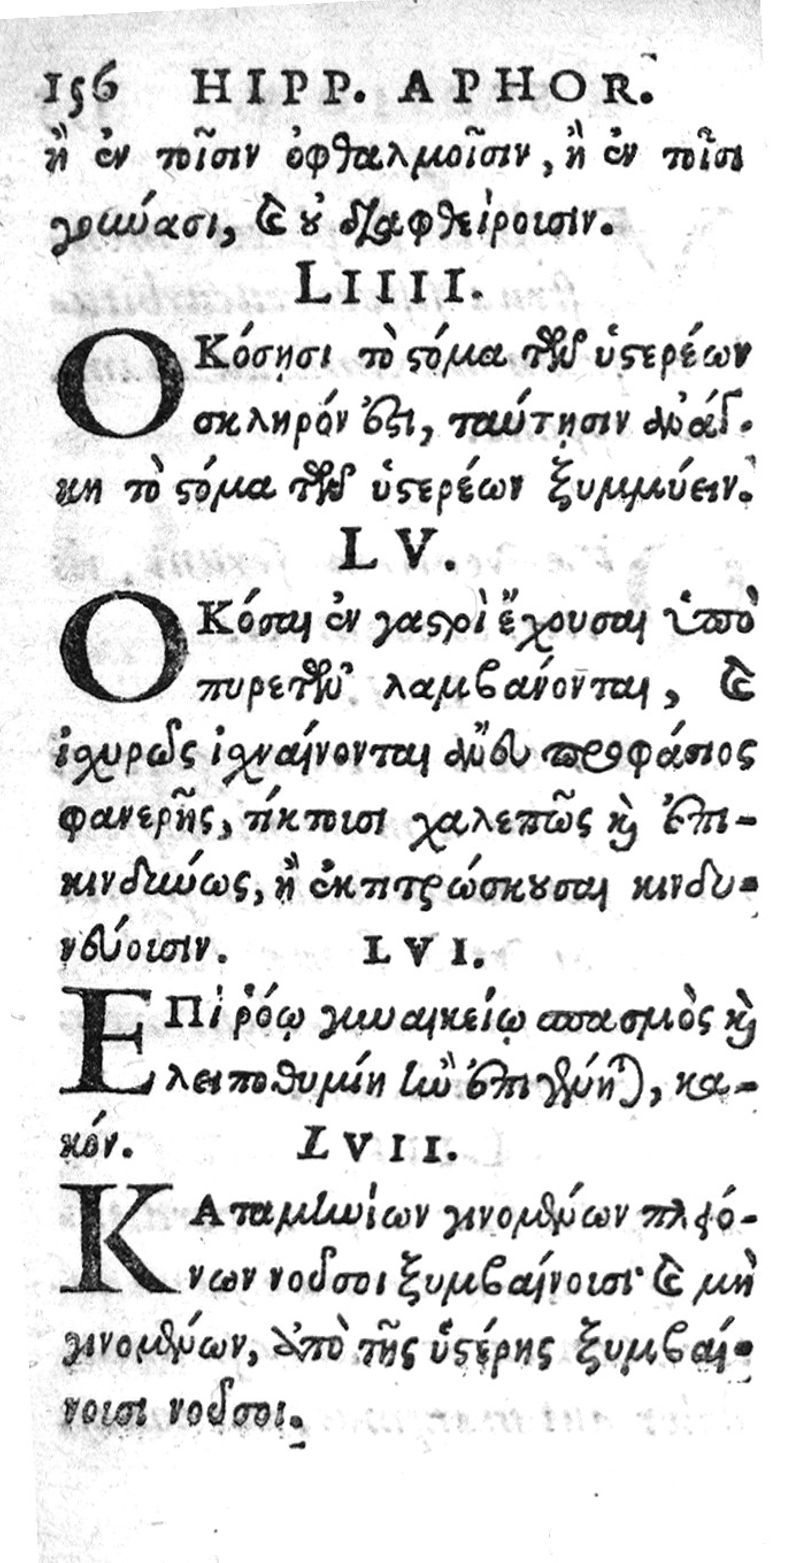 156 HIPP. APHOR.
ἢ ἐν τοῖσιν ὀφθαλμοῖσιν, ἢ ἐν τοῖσι
γούνασι, καὶ οὐ διαφθείροισιν.
LIIII.
ΟΚόσῃσι τὸ στόμα τῶν ὑστερέων
σκληρόν ἐστι, ταύτῃσιν ἀνάγ-
κη τὸ στόμα τῶν ὑστερέων ξυμμύειν.
LV.
ΟΚόσαι ἐν γαστρὶ ἔχουσαι ὑπὸ
πυρετῶν λαμβάνονται, καὶ
ἰχυρῶς ἰχναίνονται ἄνευ προφάσιος
φανερῆς, τίκτοισι χαλεπῶς καὶ ἐπι-
κινδύνως, ἢ ἐκτιτρώσκουσαι κινδυ-
νεύοισιν. LVI.
ΕΠὶ ῥόῳ γυναικείῳ σπασμὸς καὶ
λειποθυμίη ἢν ἐπιγένηται, κα-
κόν. LVII.
ΚΑταμηνίων γινομένων πλειό-
νων νοῦσοι ξυμβαίνοισι· καὶ μὴ
γινομένων, ἀπὸ τῆς ὑστέρης ξυμβαί-
νοισι νοῦσοι.